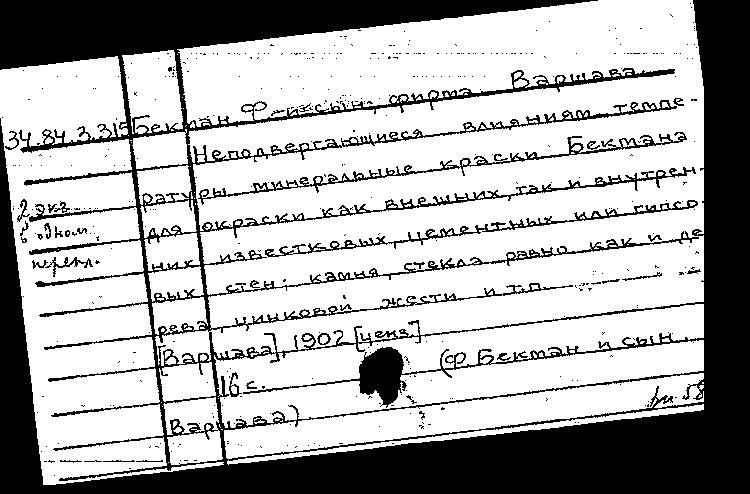 34.84.3.315 Бекман, Ф. и сын, фирма. Варшава.
Неподвергающиеся влияниям темпе-
2 экз. ратуры минеральные краски Бекмана
в одном для окраски как внешних, так и внутрен-
перепл. них известковых, цементных или гипсо-
вых стен; камня, стекла равно как и де
рева, цинковой жести и т.п.
[Варшава], 1902 [ценз]
16 с. (Ф. Бекман и сын.
Варшава)
58